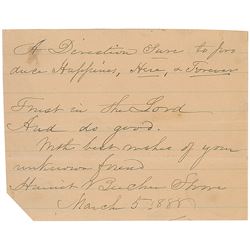 A Direction Sure to pro
duce Happiness, Here, & Forever
Trust in the Lord
And do good.
With best wishes of your
unknown friend
Harriet Beecher Stowe
March 5 188